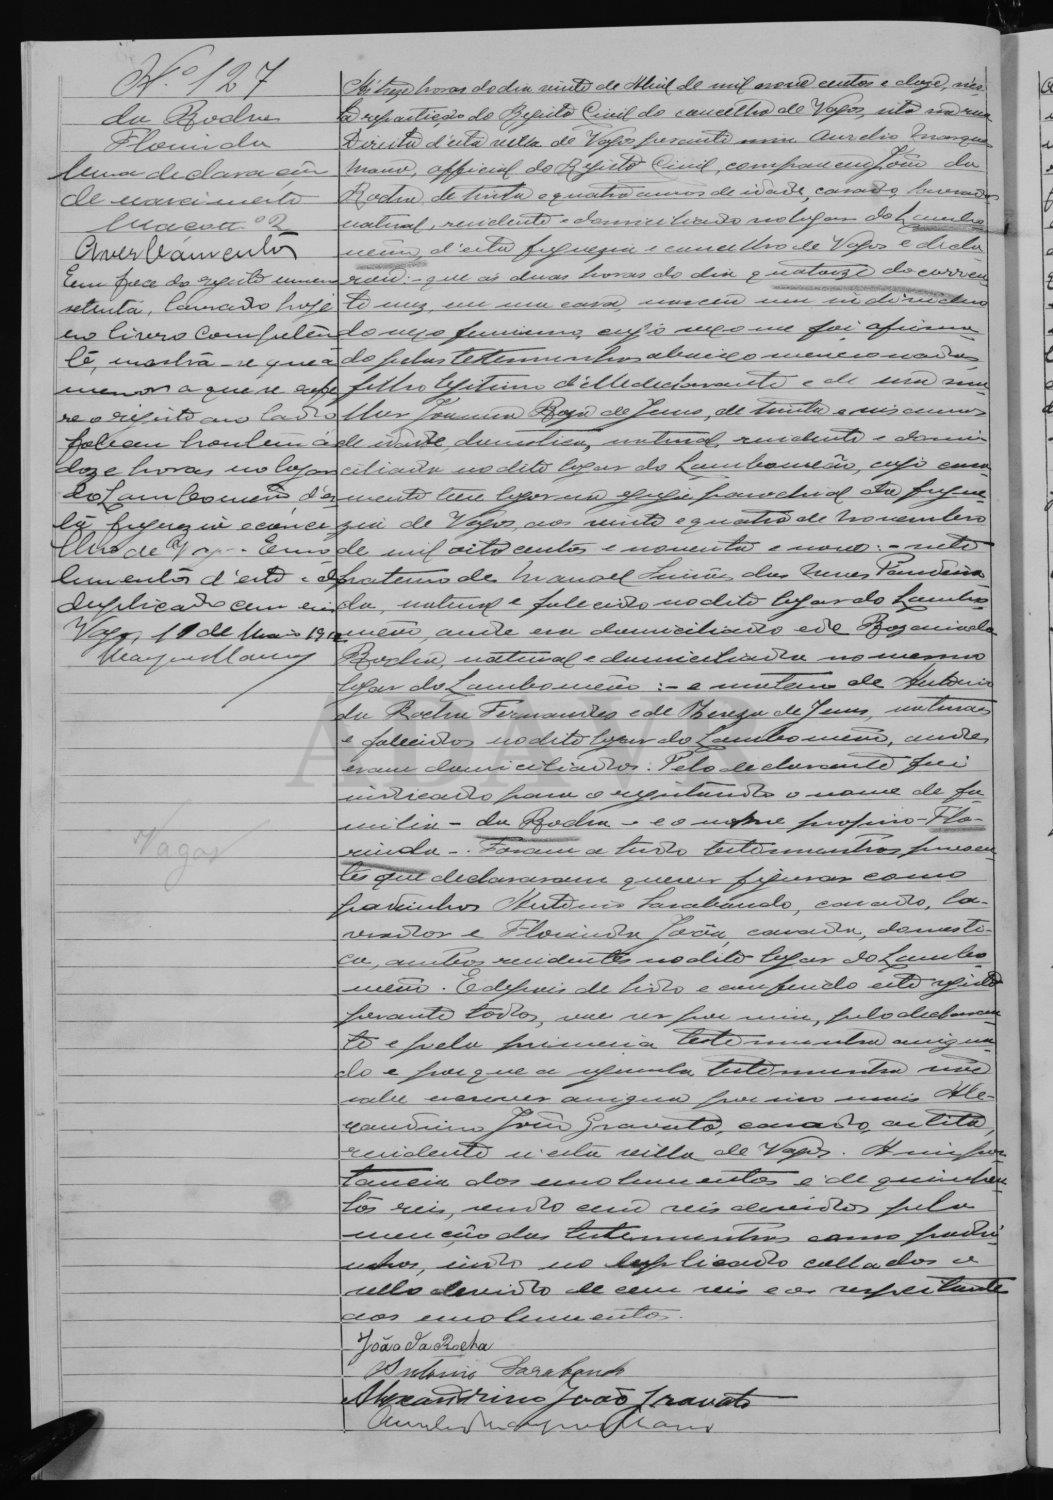 N.º 127
da Rocha
Florinda
Uma declaração
de nascimento
Maço n.º 2
Averbamentos
Em face do registo numero
setenta, lavrado hoje
no livro competen
te, mostra-se que a
menor a que se refe
re o registo ao lado
faleceu hontem ás
doze horas no logar
do Lombomeão d'es
ta freguezia e conce
lho de Vagos. Emo
lumentos d'este e do
duplicado cem reis
Vagos, 11 de Maio 1912
Marques Mano
Vagos
Ás treze horas do dia vinte de Abril de mil nove centos e doze, nes
ta repartição do Registo Civil do concelho de Vagos, sita na rua
Direita d'esta villa de Vagos perante mim Aurelio Marques
Mano, official do Registo Civil, compareceu João da
Rocha de trinta e quatro annos de idade, casado, lavrador
natural, residente e domiciliado no logar do Lombo
meão, d'esta freguezia e concelho de Vagos e decla
rou: - que ás duas horas do dia quatorze do corren
te mez, em sua casa, nasceu um individuo
do sexo feminino, cujo sexo me foi afirma
do pelas testemunhas abaixo mencionadas
filho legitimo d'elle declarante e de sua mu
lher Joanna Roza de Jesus, de trinta e seis annos
de idade, domestica, natural, residente e domi
ciliada no dito logar do Lombomeão, cujo casa
mento teve logar na egreja parochial da fregue
zia de Vagos, aos vinte e quatro de Novembro
de mil oito centos e noventa e nove: - neto
paterno de Manoel Simões das Neves
natural e falecido no dito logar do Lombo
meão, onde era domiciliado e de Roza
Rocha, natural e domiciliada no mesmo
logar do Lombomeão: - e materno de Antonio
da Rocha Fernandes e de Thereza de Jesus, naturaes
e falecidos no dito logar do Lombomeão, onde
eram domiciliados. Pelo declarante foi
indicado para o registando o nome de fa
milia - da Rocha - e o nome proprio - Flo-
rinda -. Foram a tudo testemunhas presen
tes que declararam querer figurar como
padrinhos Antonio Sarabando, casado, la-
vrador e Florinda Joana, casada, domesti-
ca, ambos residentes no dito logar do Lombo
meão. E depois de lido e conferido este registo
perante todos, vae ser por mim, pelo declaran
te e pela primeira testemunha assigna
do e porque a segunda testemunha não
sabe escrever assigna por ella mais Ale-
xandrino João Gravato, casado, artista,
residente n'esta villa de Vagos. A impor
tancia dos emolumentos é de quinhen
tos reis, sendo cem reis devidos pela
menção das testemunhas como padri
nhos, indo no duplicado collados o
sello devido de cem reis e os respeitantes
aos emolumentos.
João da Rocha
Antonio Sarabando
Alexandrino João Gravato
Aurelio Marques Mano